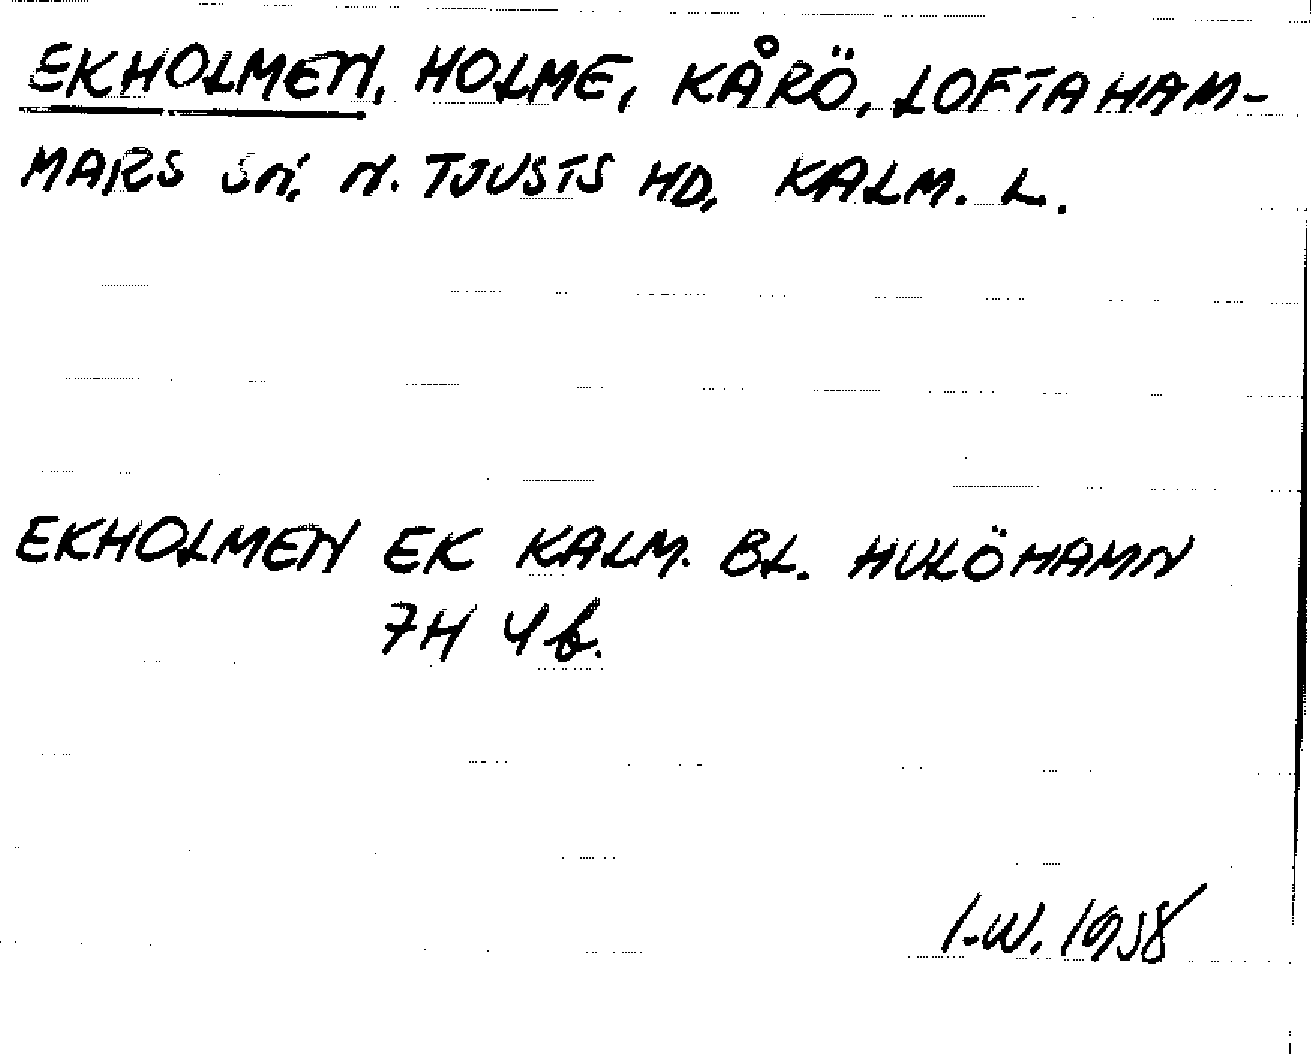 EKHOLMEN, HOLME, KÅRÖ, LOFTAHAM-
MARS SN, N. TJUSTS HD, KALM. L.
EKHOLMEN EK KALM. BL. HULÖHAMN
7H 4b.
I-W. 1958